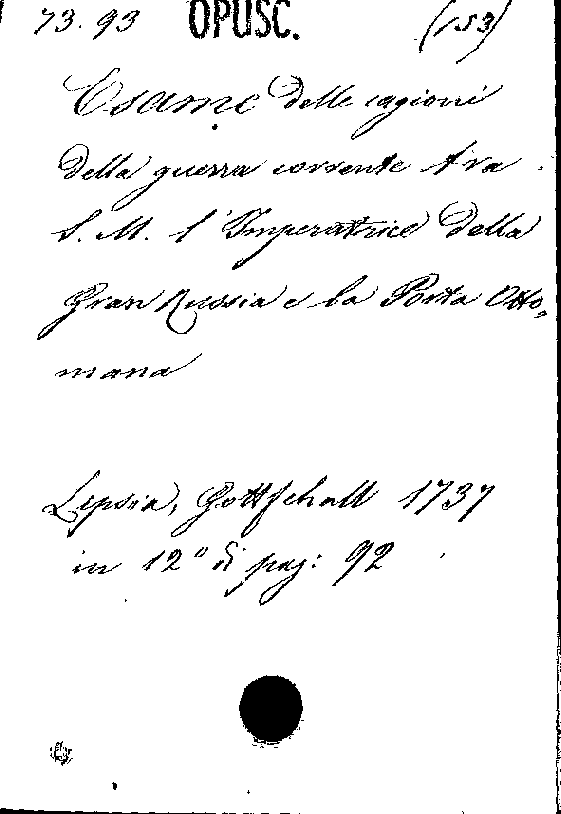 73.93 OPUSC. (153)
Esame delle cagioni
della guerra corrente tra
S. M. l'Imperatrice della
Gran Russia e la Porta Otto,
mana
Lipsia, Gottschall 1737
in 12° di pag: 92